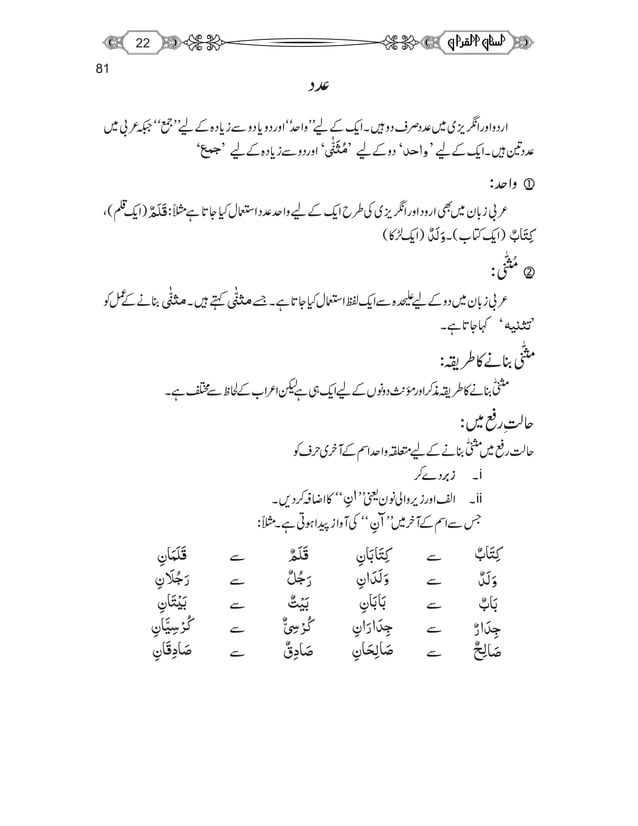 لسان القرآن 22
81
عدد
اردو اور انگریزی میں عدد صرف دو ہیں۔ ایک کے لیے ’’واحد‘‘ اور دو یا دو سے زیادہ کے لیے ’’جمع‘‘ جبکہ عربی میں
عدد تین ہیں۔ ایک کے لیے ’واحد‘ دو کے لیے ’مُثَنّٰی‘ اور دو سے زیادہ کے لیے ’جمع‘
① واحد:
عربی زبان میں بھی اردو اور انگریزی کی طرح ایک کے لیے واحد عدد استعمال کیا جاتا ہے مثلاً: قَلَمٌ (ایک قلم)،
کِتَابٌ (ایک کتاب)۔ وَلَدٌ (ایک لڑکا)
② مُثَنّٰی:
عربی زبان میں دو کے لیے علیحدہ سے ایک لفظ استعمال کیا جاتا ہے۔ جسے مثنّٰی کہتے ہیں۔ مثنّٰی بنانے کے عمل کو
’تثنیہ‘ کہا جاتا ہے۔
مثنّٰی بنانے کا طریقہ:
مثنّٰی بنانے کا طریقہ مذکر اور مؤنث دونوں کے لیے ایک ہی ہے لیکن اعراب کے لحاظ سے مختلف ہے۔
حالتِ رفع میں:
حالت رفع میں مثنّٰی بنانے کے لیے متعلقہ واحد اسم کے آخری حرف کو
i۔ زبر دے کر
ii۔ الف اور زیر والی نون یعنی ’’انِ‘‘ کا اضافہ کر دیں۔
جس سے اسم کے آخر میں ’’آنِ‘‘ کی آواز پیدا ہوتی ہے۔ مثلاً:
کِتَابٌ سے کِتَابَانِ قَلَمٌ سے قَلَمَانِ
وَلَدٌ سے وَلَدَانِ رَجُلٌ سے رَجُلَانِ
بَابٌ سے بَابَانِ بَیْتٌ سے بَیْتَانِ
جِدَارٌ سے جِدَارَانِ کُرْسِیٌّ سے کُرْسِیَّانِ
صَالِحٌ سے صَالِحَانِ صَادِقٌ سے صَادِقَانِ